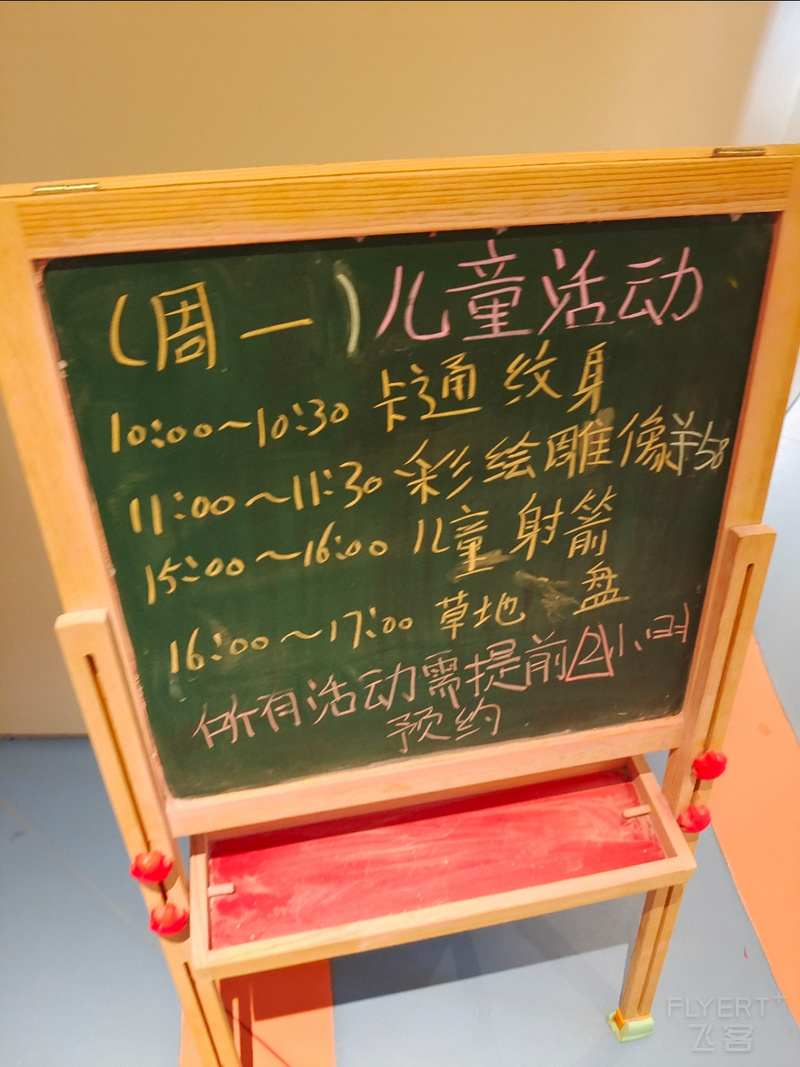 (周一)儿童活动
10:00~10:30 卡通纹身
11:00~11:30 彩绘雕像¥58
15:00~16:00 儿童射箭
16:00~17:00 草地 盘
所有活动需提前2小时
预约
FLYERT+
飞客